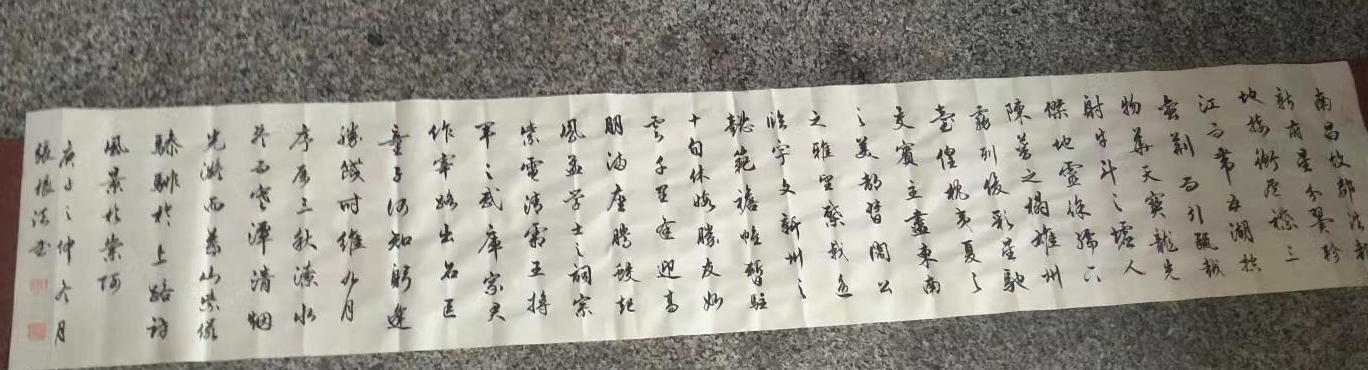 南昌故郡洪都
新府星分翼軫
地接衡廬襟三
江而帶五湖控
蠻荊而引甌越
物華天寶龍光
射牛斗之墟人
傑地靈徐孺下
陳蕃之榻雄州
霧列俊彩星馳
臺隍枕夷夏之
交賓主盡東南
之美都督閻公
之雅望棨戟遙
臨宇文新州之
懿範襜帷暫駐
十旬休暇勝友如
雲千里逢迎高
朋滿座騰蛟起
鳳孟学士之詞宗
紫電清霜王將
軍之武庫家君
作宰路出名區
童子何知躬逢
勝餞時維九月
序屬三秋潦水
尽而寒潭清烟
光凝而暮山紫儼
驂騑於上路訪
風景於崇阿
庚子之仲冬月
張根法書